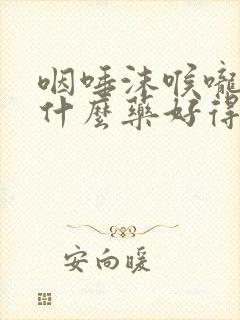 咽唾沫喉嚨
什麼藥好得
安向暖